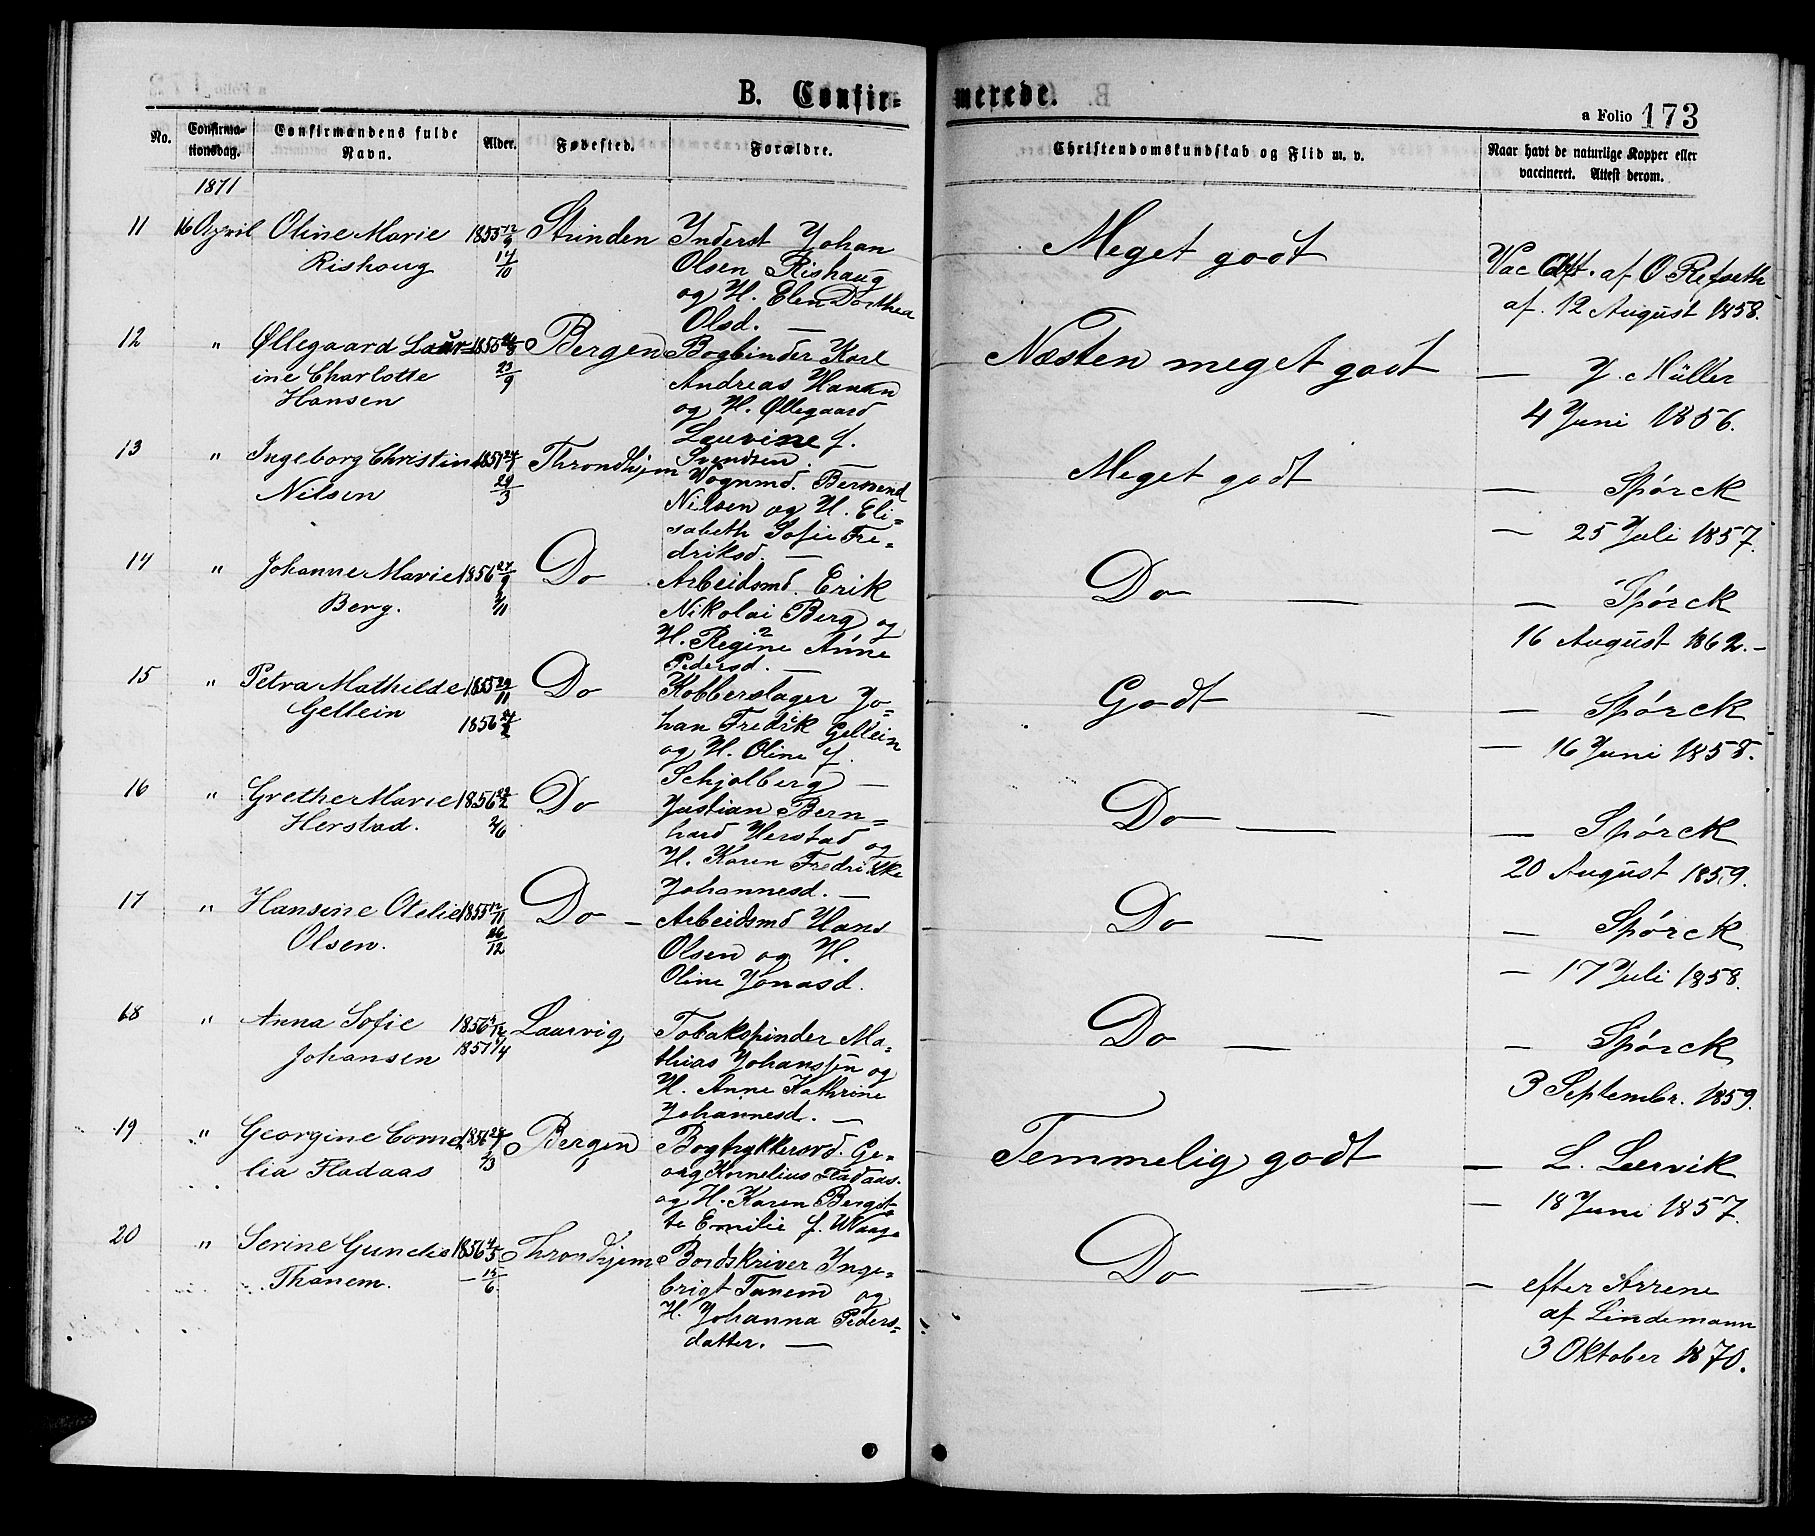 B. Confir-
merede.
a Folio 173
No.
Confirma-
tionsdag.
Confirmandens fulde
Navn.
Alder.
Fødested.
Forældre.
Christendomskundskab og Flid m. v.
Naar havt de naturlige Kopper eller
vaccineret. Attest derom.
1871
11 16 April Oline Marie 1855 12/9 Strinden Inderst Johan
Rishoug 14/10 Olsen Rishaug
og H. Elen Dorthea
Olsd. —
Meget godt
Vac Att. af O Refseth
af 12 August 1858.
12 " Øllegaard Laur- 1855 Bergen Bogbinder Karl
ine Charlotte 23/9 Andreas Hansen
Hansen og H. Øllegaard
Laurine f.
Svendsen. —
Næsten meget godt
— J. Müller
4 Juni 1856.
13 " Ingeborg Christine 1857 Throndhjem Vognmd. Bersvend
Nilsen 29/3 Nilsen og H. Eli-
sabeth Sofie Fre-
driksd. —
Meget godt
— Spørck
— 25 Juli 1857.
14 " Johanne Marie 1856 27/9 Do Arbeidsmd. Erik
Berg. 2/11 Nikolai Berg og
H. Regine Anne
Pedersd. —
Do —
— Spørck
16 August 1862. –
15 " Petra Mathilde 1855 29/11 Do Kobberslager Jo-
Gellein 1856 han Fredrik Gellein
og H. Oline f.
Schjolberg —
Godt —
— Spørck
— 16 Juni 1858.
16 " Grethe Marie 1856 Do Justian Bern-
Herstad. 2/6 hard Herstad og
H. Karen Fredrikke
Johannesd. —
Do —
— Spørck
20 August 1859.
17 " Hansine Otelie 1855 12/11 Do — Arbeidsmd Hans
Olsen. 26/12 Olsen og H.
Oline Jonasd.
Do —
— Spørck
— 17 Juli 1858.
68 " Anna Sofie 1856 Laurvig Tobakspinder Ma-
Johansen 1857 1/4 thias Johansen og
H. Anne Kathrine
Johannesd. —
Do —
— Spørck
3 Septembr. 1859.
19 " Georgine Corne- 1856 Bergen Bogtrykkersvd. Ge-
lia Fladaas org Kornelius Fladaas.
og H. Karen Bergit-
te Emilie f. Waage
Temmelig godt
— L. Leervik
— 18 Juni 1857.
20 " Serine Gundia 1856 4/5 Throndhjem Bordskriver Inge-
Thanem. — 15/6 brigt Tanem og
H. Johanna Peders-
datter. —
Do —
— efter Arrene
af Lindemann
3 Oktober 1870.